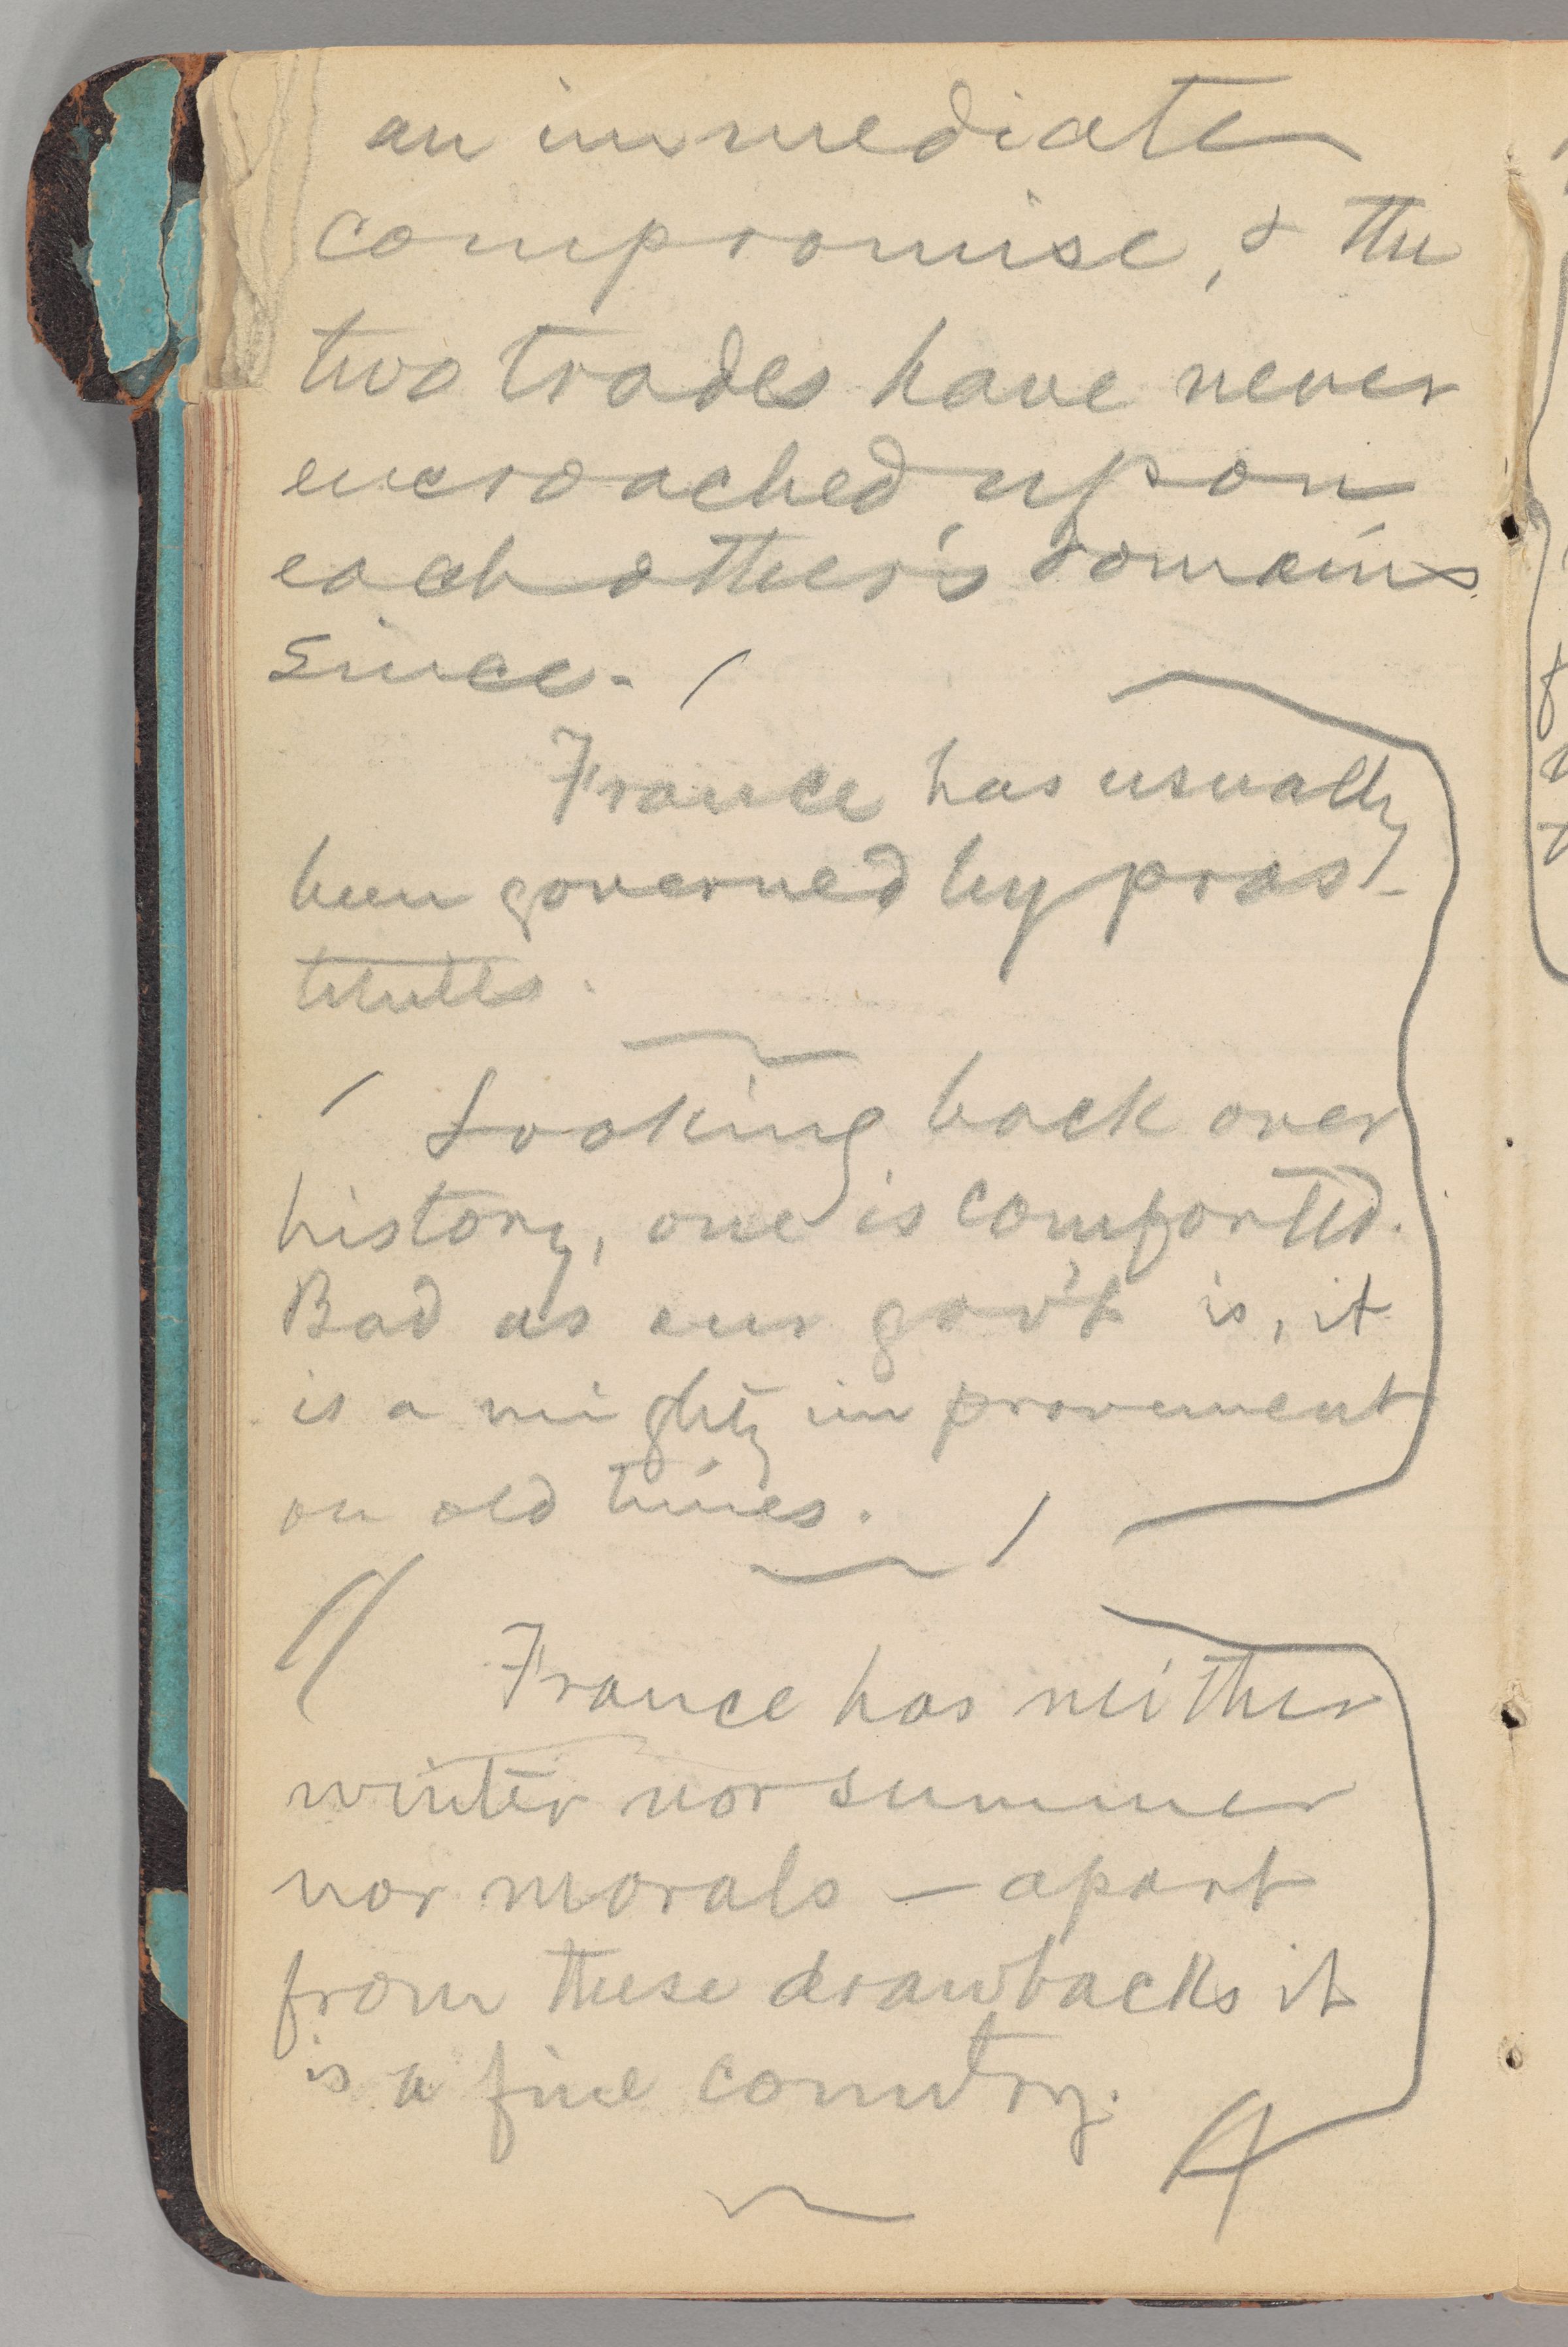 an immediate
compromise, & the
two trades have never
encroached upon
each other's domains
since.
France has usually
been governed by pros-
titutes.
Looking back over
history, one is comforted.
Bad as our gov't is, it
is a mighty improvement
on old times.
France has neither
winter nor summer
nor morals — apart
from these drawbacks it
is a fine country.